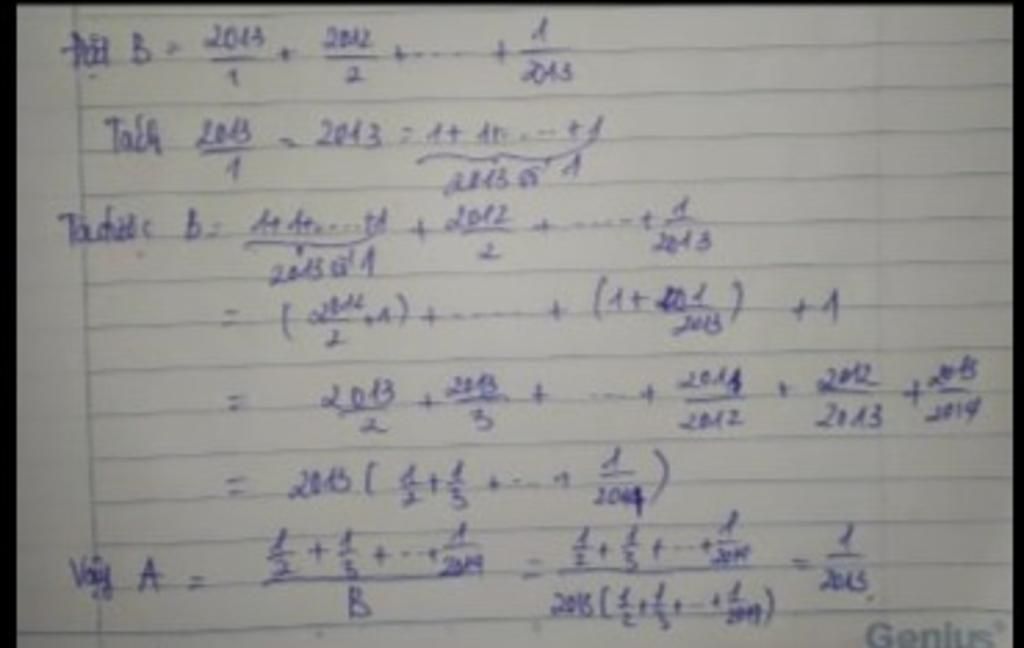 Đặt B = 2013/1 + 2012/2 + ..... + 1/2013
Tách 2013/1 = 2013 = 1 + 1 + ..... + 1
2013 số 1
Ta được B = 1+1+.....+1 + 2012/2 + ..... + 1/2013
2013 số 1
= (2012/2 + 1) + ....... + (1 + 1/2013) + 1
= 2013/2 + 2013/3 + ..... + 2014/2012 + 2012/2013 + 2013/2014
= 2013 ( 1/2 + 1/3 + ... + 1/2014 )
Vậy A = (1/2 + 1/3 + ... + 1/2014)/B = (1/2 + 1/3 + ... + 1/2014)/(2013(1/2 + 1/3 + ... + 1/2014)) = 1/2013
Genius